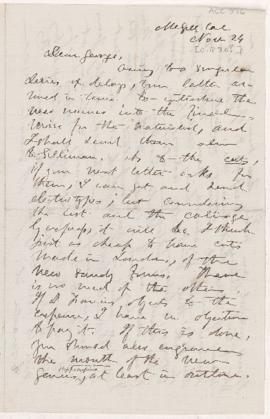 McGill Col
Nov. 24
Dear George,
Owing to a singular
series of delays, your letter ar-
rived in time, to introduce the
new names into the
for the Naturalist, and
I shall send them also
to Silliman. As to the cuts,
if your next letter asks for
them, I can get and send
electrotypes; but considering
the cost and the carriage
perhaps it will be I think
just as cheap to have cuts
made in London, of the
new Sandy forms. There
is no need of the others.
If D objects to the
expense, I have no objection
to pay it. If this is done,
you should also engrave
the mouth of the new
genus, at least in outline.